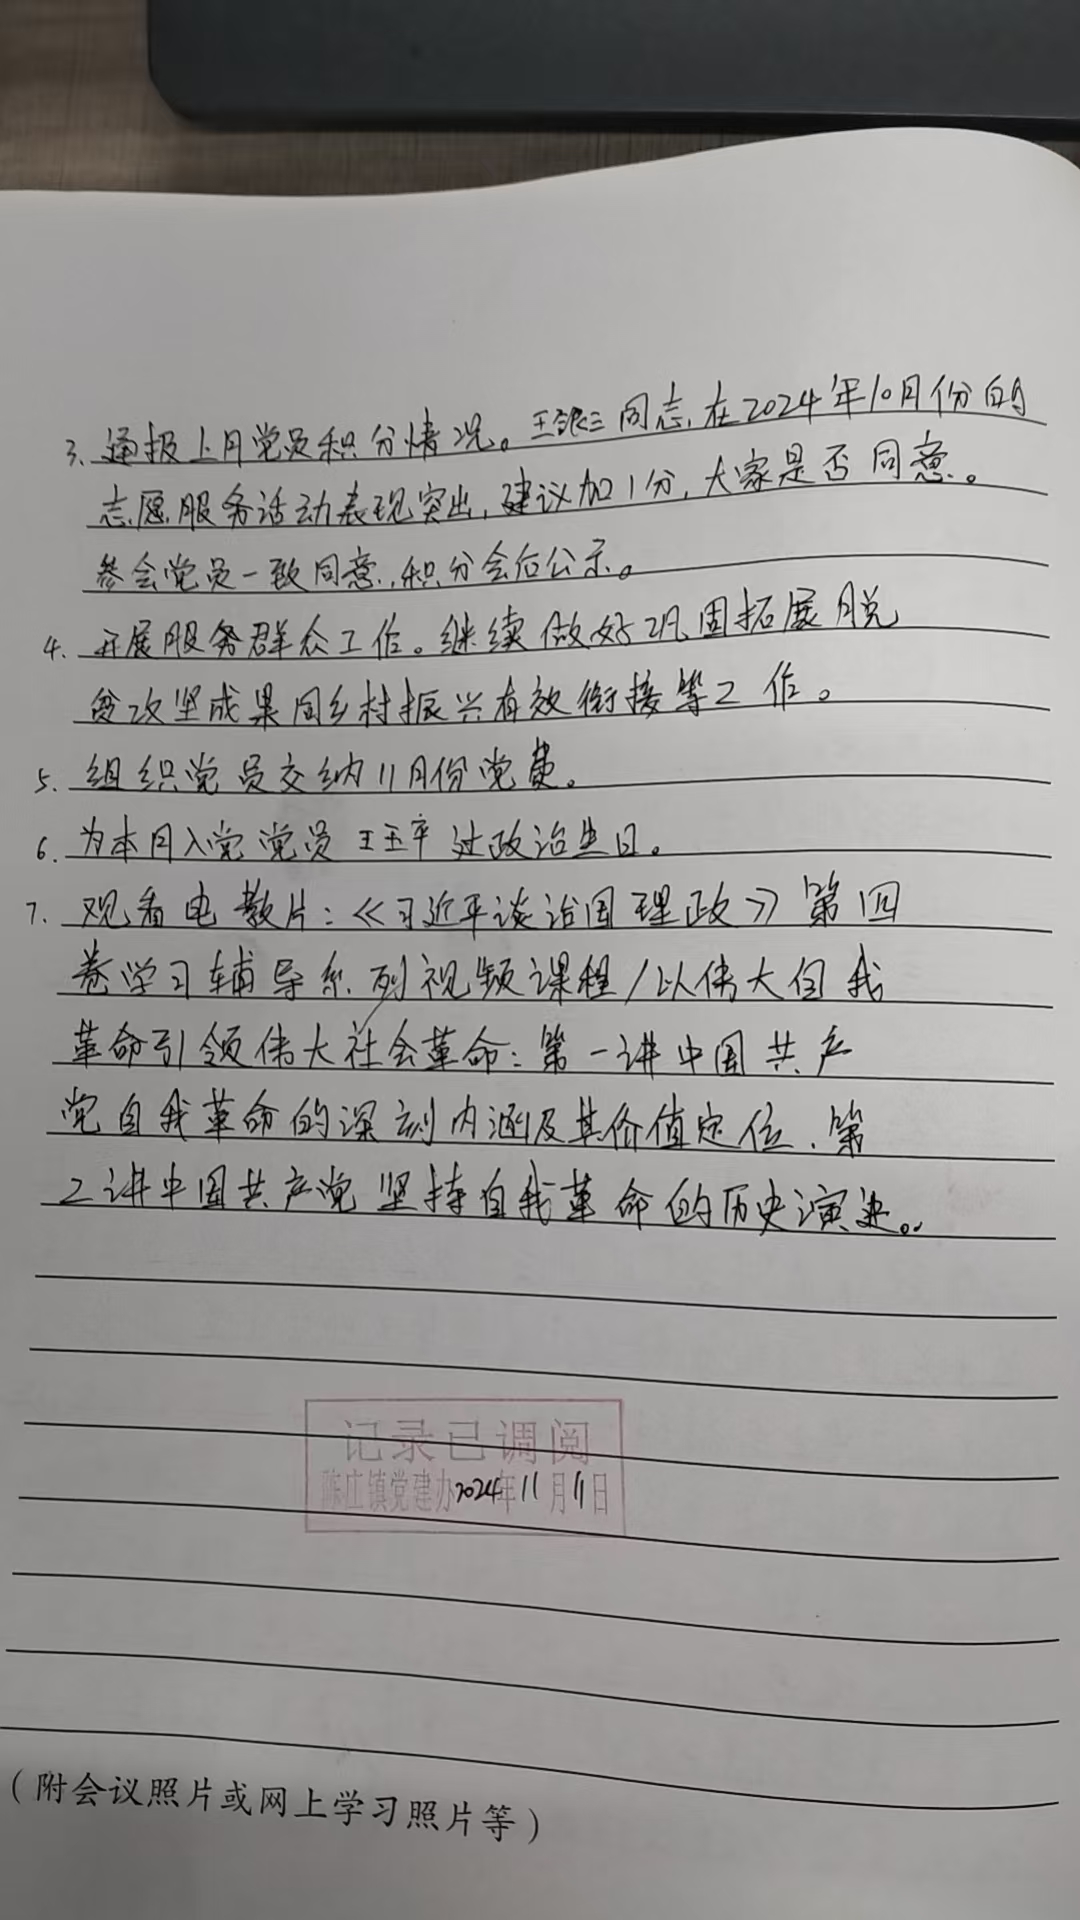 3. 通报上月党员积分情况。王银三同志,在2024年10月份的
志愿服务活动表现突出,建议加1分,大家是否同意。
参会党员一致同意,积分会后公示。
4. 开展服务群众工作。继续做好巩固拓展脱
贫攻坚成果同乡村振兴有效衔接等工作。
5. 组织党员交纳11月份党费。
6. 为本月入党党员王玉平过政治生日。
7. 观看电教片:《习近平谈治国理政》第四
卷学习辅导系列视频课程/以伟大自我
革命引领伟大社会革命:第一讲中国共产
党自我革命的深刻内涵及其价值定位、第
2讲中国共产党坚持自我革命的历史演进。
记录已调阅
陈庄镇党建办2024年11月11日
(附会议照片或网上学习照片等)